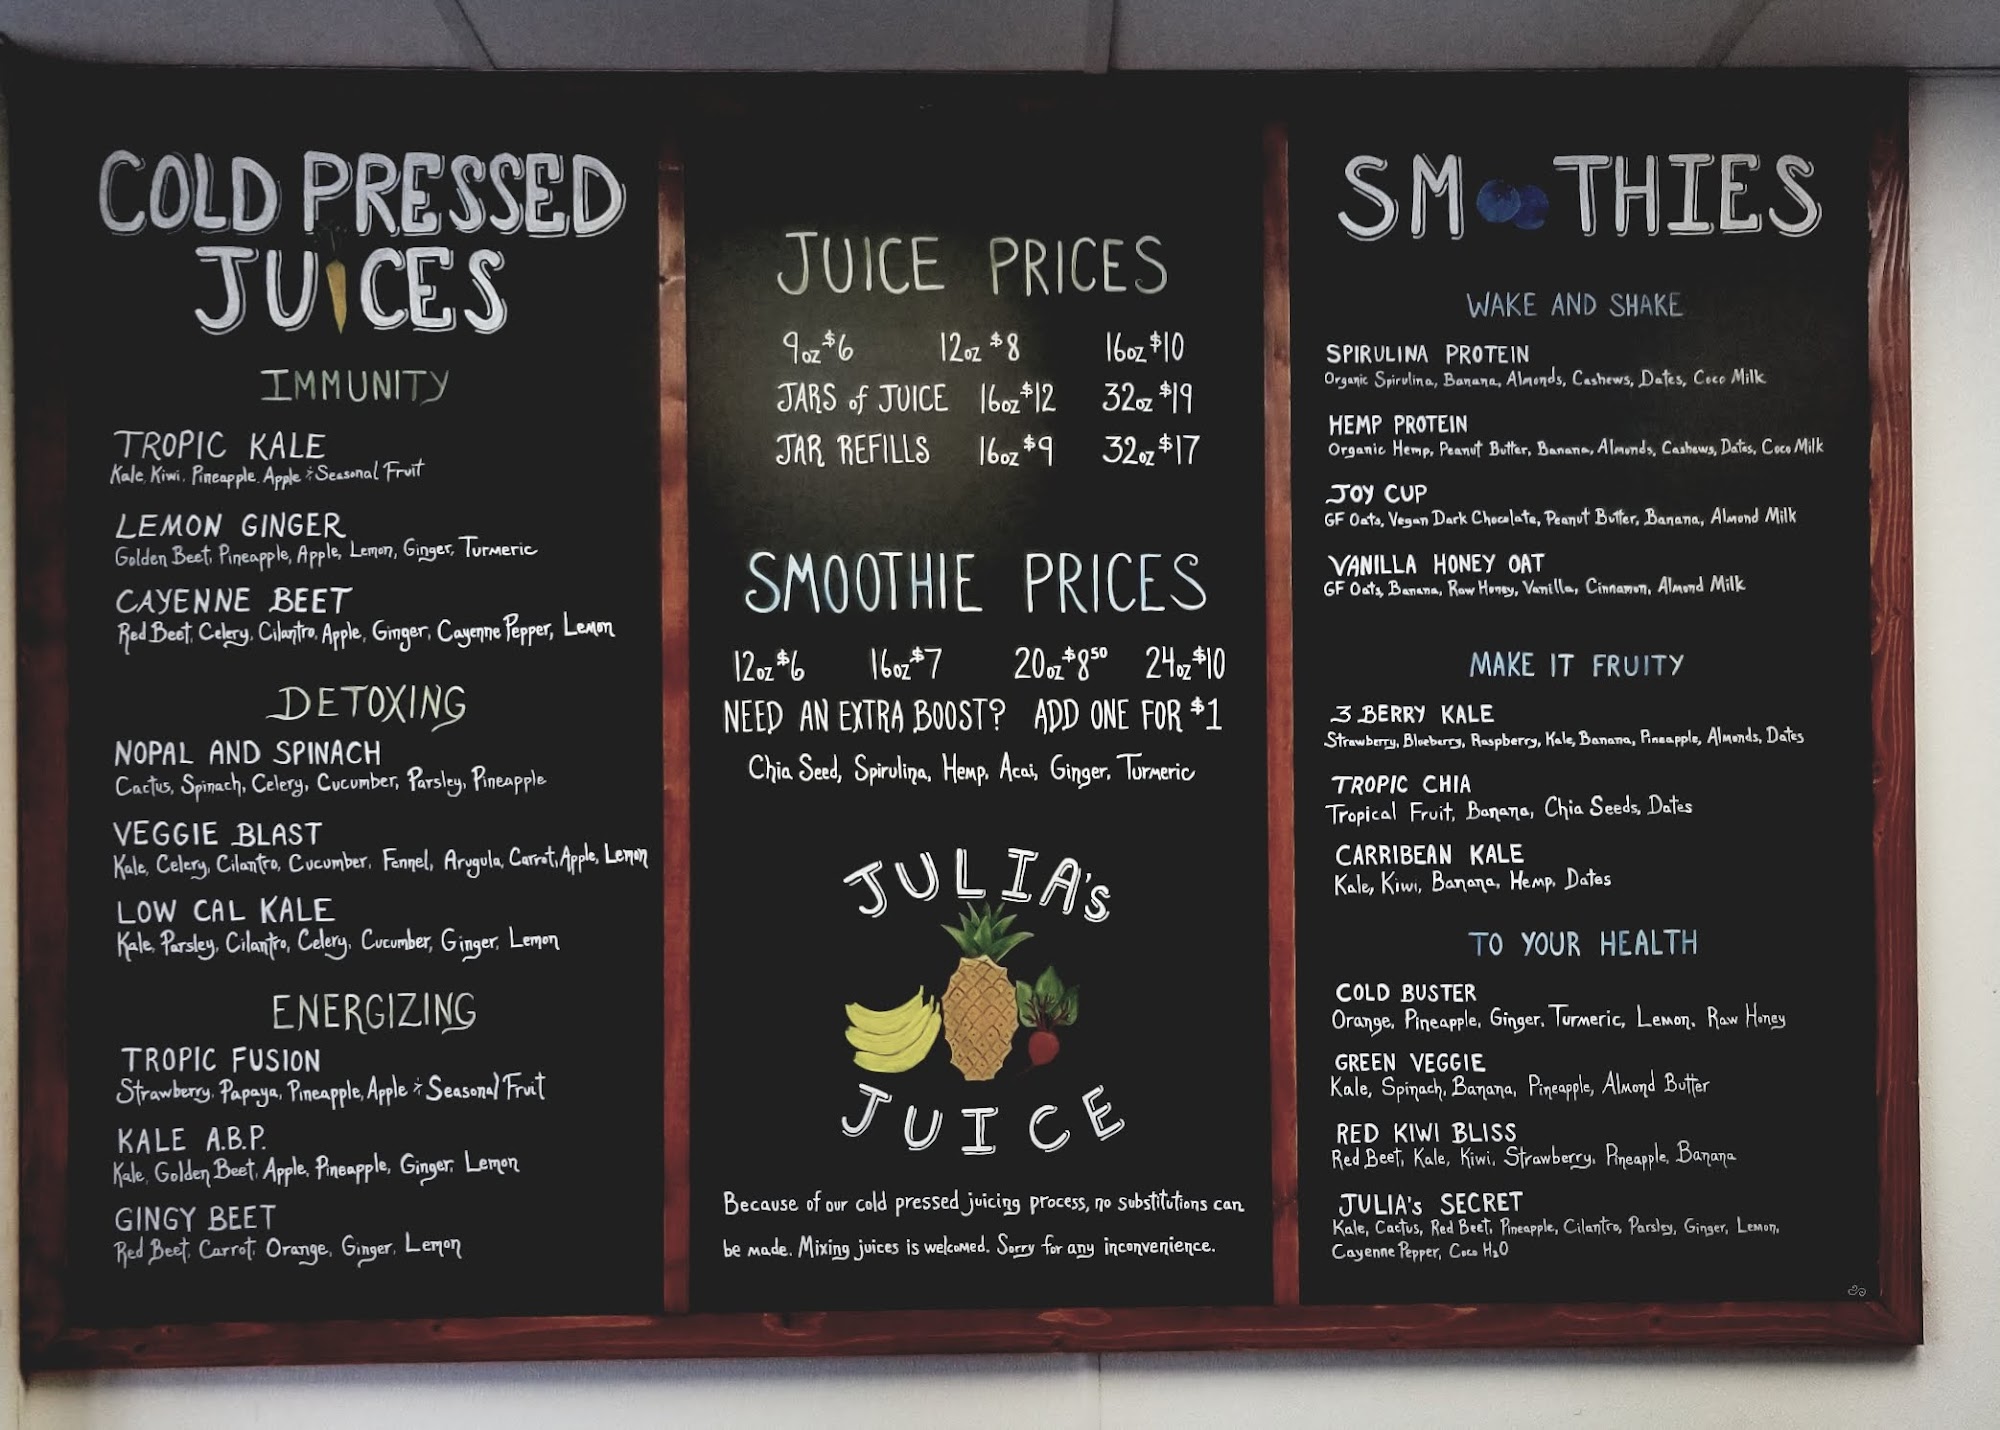 COLD PRESSED
JUICES
IMMUNITY
TROPIC KALE
Kale, Kiwi, Pineapple, Apple & Seasonal Fruit
LEMON GINGER
Golden Beet, Pineapple, Apple, Lemon, Ginger, Turmeric
CAYENNE BEET
Red Beet, Celery, Cilantro, Apple, Ginger, Cayenne Pepper, Lemon
DETOXING
NOPAL AND SPINACH
Cactus, Spinach, Celery, Cucumber, Parsley, Pineapple
VEGGIE BLAST
Kale, Celery, Cilantro, Cucumber, Fennel, Arygula, Carrot, Apple, Lemon
LOW CAL KALE
Kale, Parsley, Cilantro, Celery, Cucumber, Ginger, Lemon
ENERGIZING
TROPIC FUSION
Strawberry, Papaya, Pineapple, Apple & Seasonal Fruit
KALE A.B.P.
Kale, Golden Beet, Apple, Pineapple, Ginger, Lemon
GINGY BEET
Red Beet, Carrot, Orange, Ginger, Lemon
JUICE PRICES
9oz $6 12oz $8 16oz $10
JARS of JUICE 16oz $12 32oz $19
JAR REFILLS 16oz $9 32oz $17
SMOOTHIE PRICES
12oz $6 16oz $7 20oz $8 50 24oz $10
NEED AN EXTRA BOOST? ADD ONE FOR $1
Chia Seed, Spirulina, Hemp, Acai, Ginger, Turmeric
JULIA's
JUICE
Because of our cold pressed juicing process, no substitutions can
be made. Mixing juices is welcomed. Sorry for any inconvenience.
SMOOTHIES
WAKE AND SHAKE
SPIRULINA PROTEIN
Organic Spirulina, Banana, Almonds, Cashews, Dates, Coco Milk
HEMP PROTEIN
Organic Hemp, Peanut Butter, Banana, Almonds, Cashews, Dates, Coco Milk
JOY CUP
GF Oats, Vegan Dark Chocolate, Peanut Butter, Banana, Almond Milk
VANILLA HONEY OAT
GF Oats, Banana, Raw Honey, Vanilla, Cinnamon, Almond Milk
MAKE IT FRUITY
3 BERRY KALE
Strawberry, Blueberry, Raspberry, Kale, Banana, Pineapple, Almonds, Dates
TROPIC CHIA
Tropical Fruit, Banana, Chia Seeds, Dates
CARRIBEAN KALE
Kale, Kiwi, Banana, Hemp, Dates
TO YOUR HEALTH
COLD BUSTER
Orange, Pineapple, Ginger, Turmeric, Lemon, Raw Honey
GREEN VEGGIE
Kale, Spinach, Banana, Pineapple, Almond Butter
RED KIWI BLISS
Red Beet, Kale, Kiwi, Strawberry, Pineapple, Banana
JULIA's SECRET
Kale, Cactus, Red Beet, Pineapple, Cilantro, Parsley, Ginger, Lemon,
Cayenne Pepper, Coco H2O